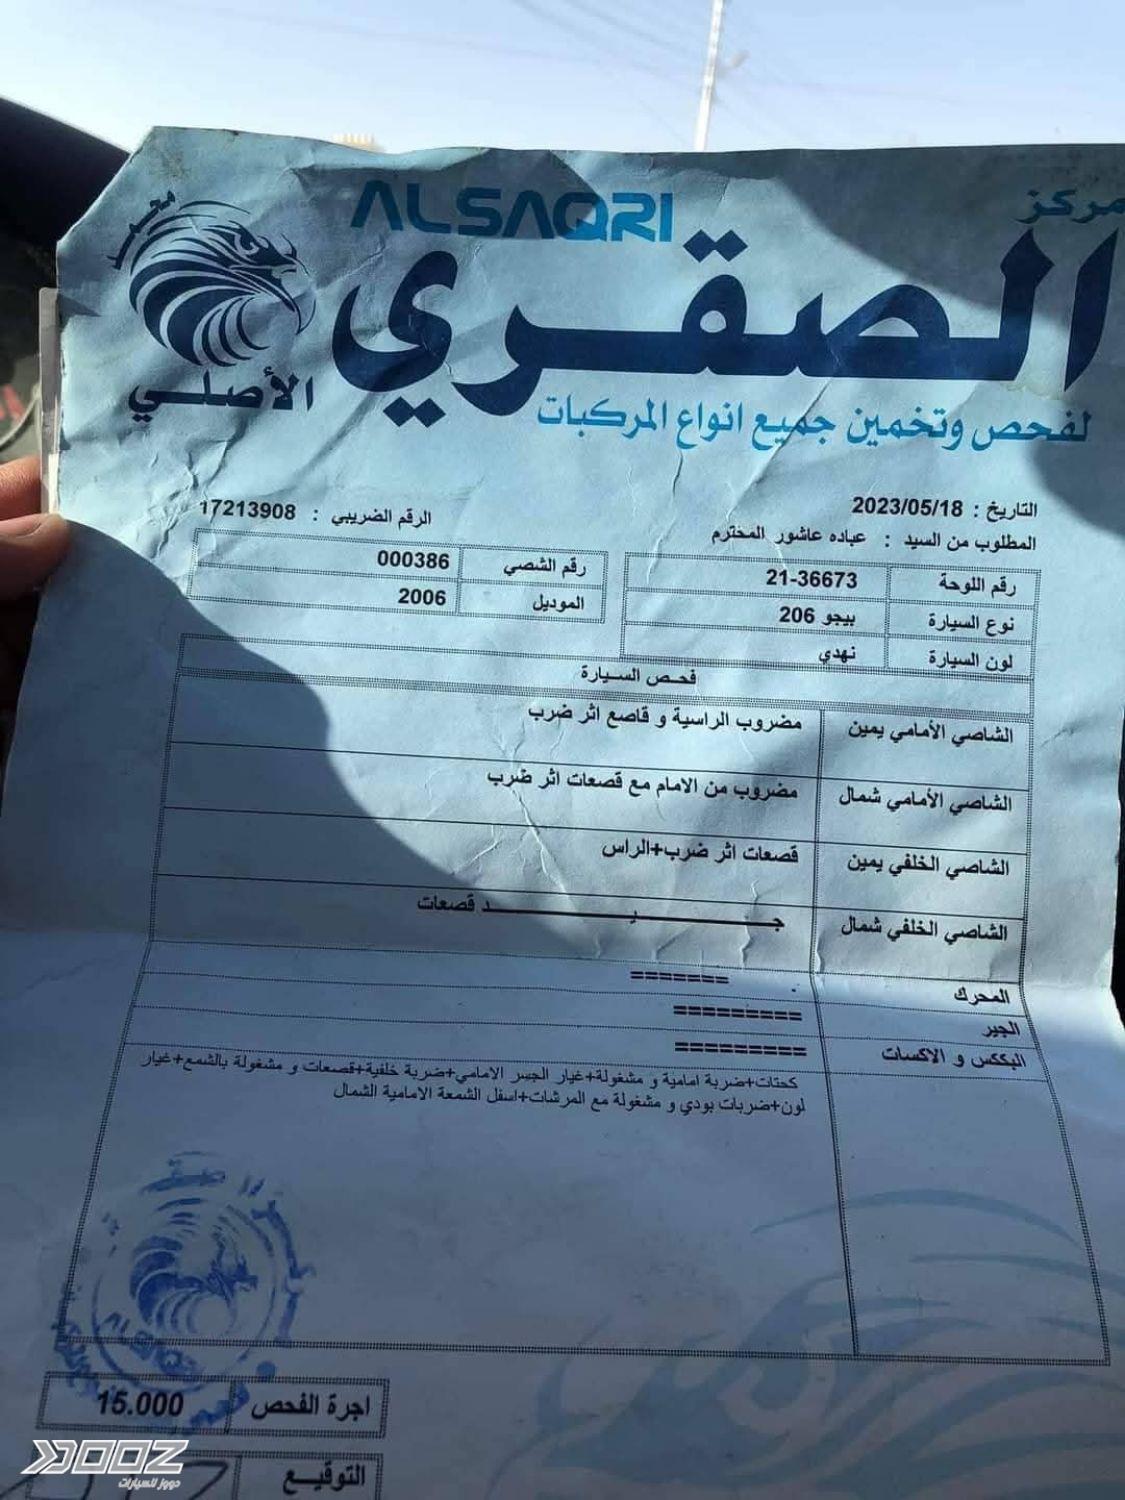 مركز
ALSAQRI
الصقري
الأصلي
لفحص وتخمين جميع انواع المركبات
التاريخ : 2023/05/18
الرقم الضريبي : 17213908
المطلوب من السيد : عباده عاشور المحترم
رقم اللوحة 21-36673
رقم الشصي 000386
نوع السيارة بيجو 206
الموديل 2006
لون السيارة نهدي
فحص السيارة
الشاصي الأمامي يمين مضروب الراسية و قاصع اثر ضرب
الشاصي الأمامي شمال مضروب من الامام مع قصعات اثر ضرب
الشاصي الخلفي يمين قصعات اثر ضرب+الراس
الشاصي الخلفي شمال جـــيـــد قصعات
المحرك =======
الجير =========
البككس و الاكسات =========
كحتات+ضربة امامية و مشغولة+غيار الجسر الامامي+ضربة خلفية+قصعات و مشغولة بالشمع+غيار
لون+ضربات بودي و مشغولة مع المرشات+اسفل الشمعة الامامية الشمال
اجرة الفحص 15.000
التوقيع
DOOZ
دووز للسيارات